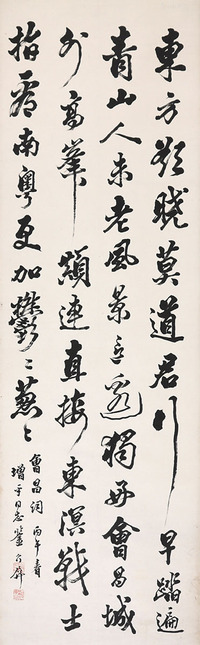 東方欲曉莫道君行早踏遍
青山人未老風景這邊獨好會昌城
外高峯顛連直接東溟戰士
指看南粵更加欝〻蔥〻
會昌詞 丙午春
同志鑒